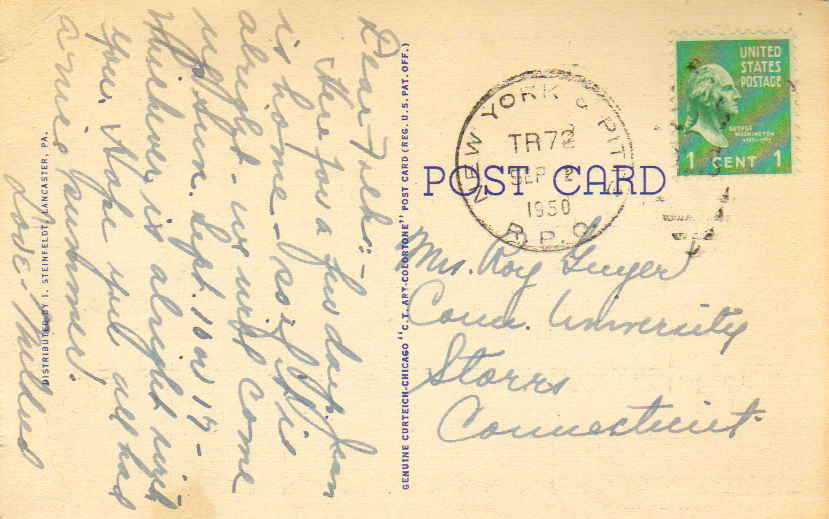 Dear Folks:-
Here for a few days. Jean
is home - so if it is
alright - we will come
up Sun. Sept. 10 or 17 -
whichever is alright with
you. Hope you all had
a nice summer.
Love - Mildred
DISTRIBUTED BY I. STEINFELDT, LANCASTER, PA.
GENUINE CURTEICH-CHICAGO "C.T. ART-COLORTONE" POST CARD (REG. U.S. PAT. OFF.)
POST CARD
NEW YORK & PITTS
TR72
SEP 2
1950
R.P.O.
UNITED
STATES
POSTAGE
GEORGE
WASHINGTON
1 CENT 1
Mrs. Roy Guyer
Conn. University
Storrs
Connecticut